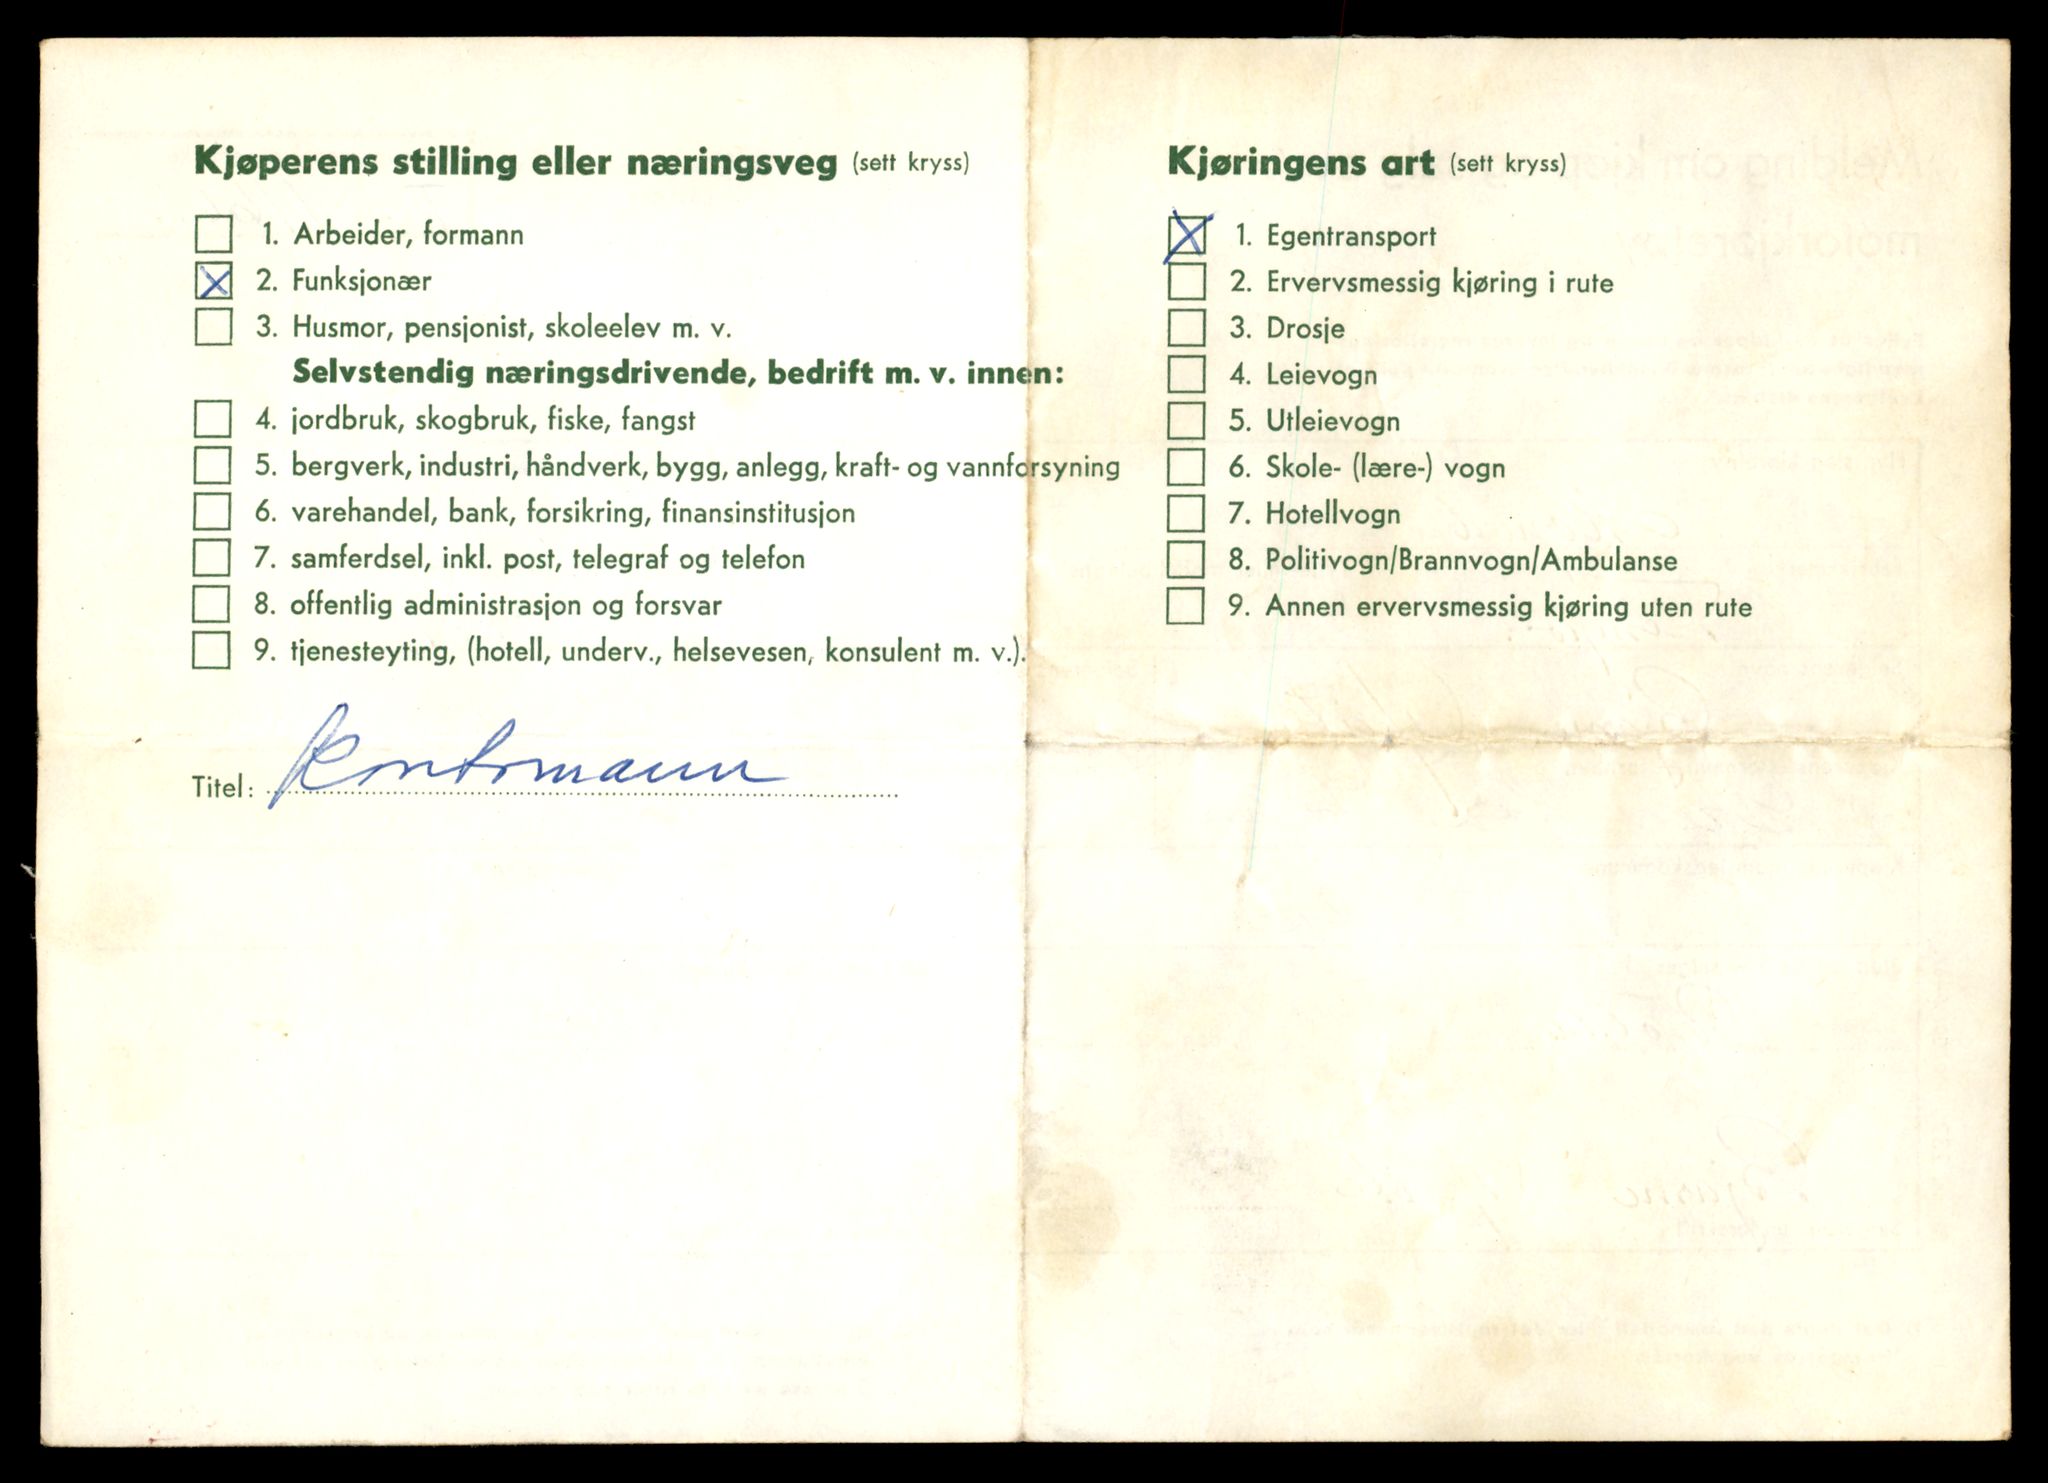 Kjøperens stilling eller næringsveg (sett kryss)
1. Arbeider, formann
2. Funksjonær
3. Husmor, pensjonist, skoleelev m. v.
Selvstendig næringsdrivende, bedrift m. v. innen:
4. jordbruk, skogbruk, fiske, fangst
5. bergverk, industri, håndverk, bygg, anlegg, kraft- og vannforsyning
6. varehandel, bank, forsikring, finansinstitusjon
7. samferdsel, inkl. post, telegraf og telefon
8. offentlig administrasjon og forsvar
9. tjenesteyting, (hotell, underv., helsevesen, konsulent m. v.).
Titel: Kontormann
Kjøringens art (sett kryss)
1. Egentransport
2. Ervervsmessig kjøring i rute
3. Drosje
4. Leievogn
5. Utleievogn
6. Skole- (lære-) vogn
7. Hotellvogn
8. Politivogn/Brannvogn/Ambulanse
9. Annen ervervsmessig kjøring uten rute